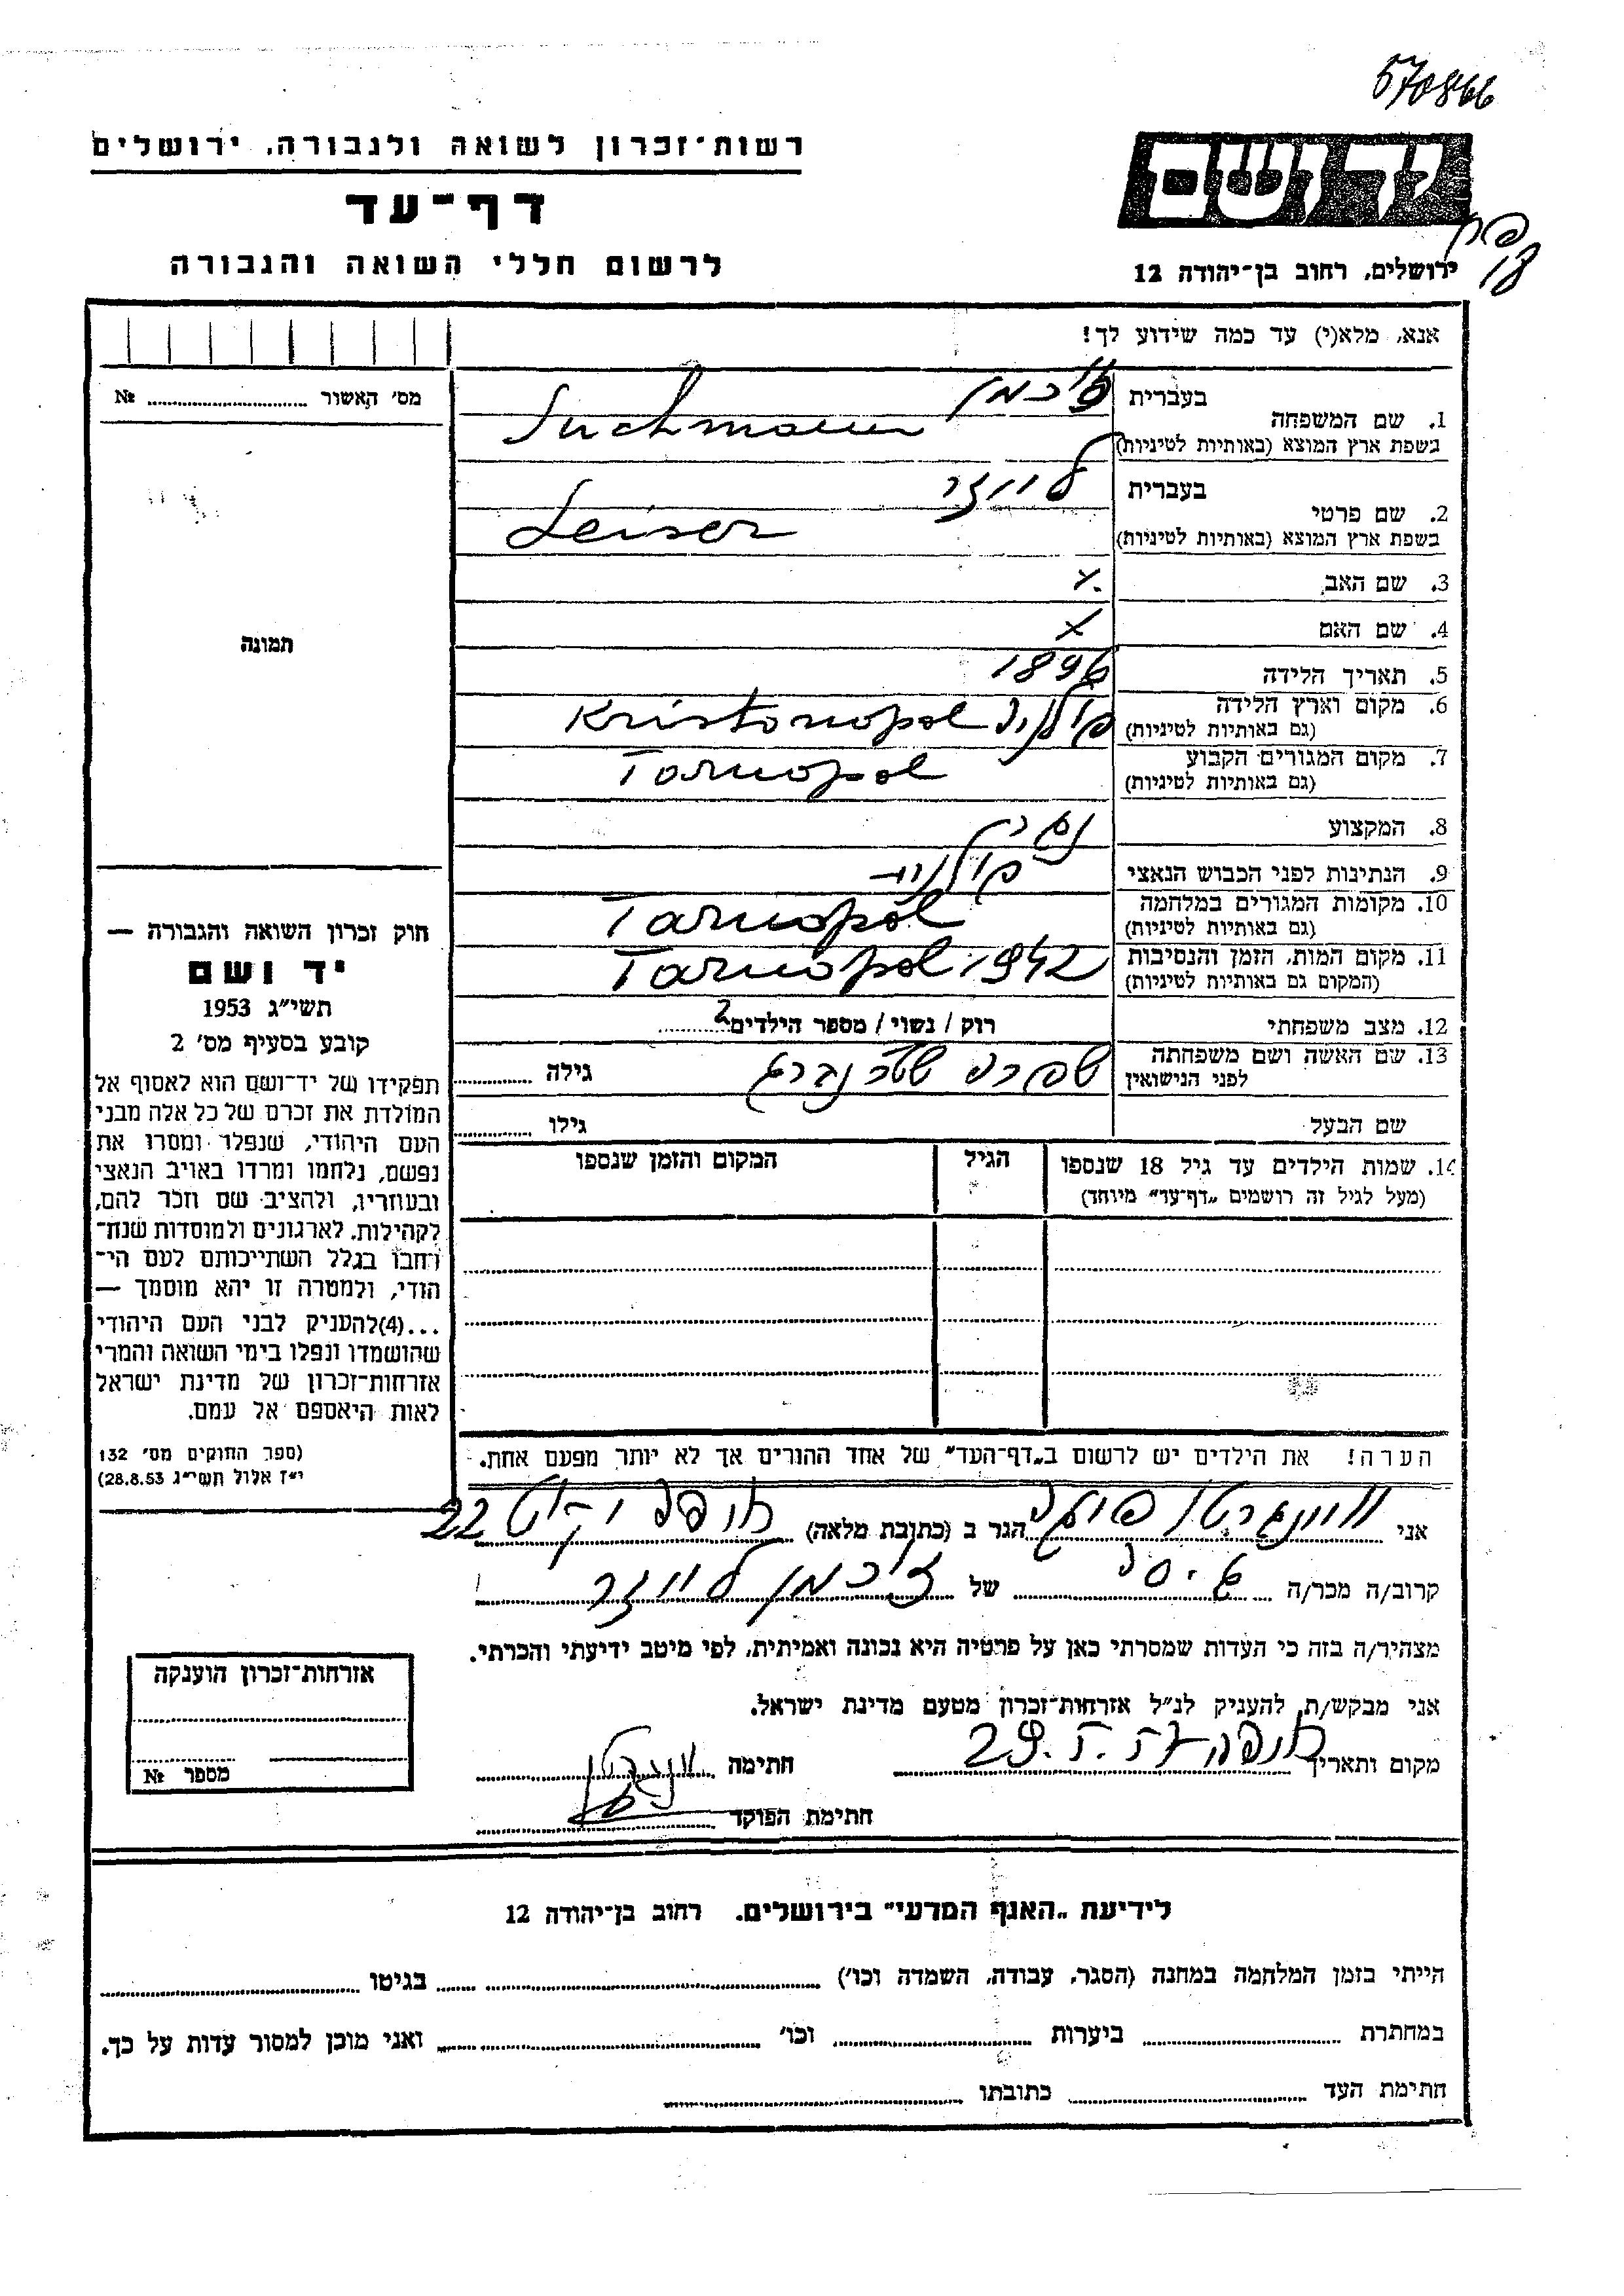 570866
רשות־זכרון לשואה ולגבורה, ירושלים
יד ושם
דף־עד
לרשום חללי השואה והגבורה
ירושלים, רחוב בן־יהודה 12
אנא, מלא(י) עד כמה שידוע לך!
מס' האשור № 
1. שם המשפחה בעברית
בשפת ארץ המוצא (באותיות לטיניות) Suchmann
2. שם פרטי בעברית לייזר
בשפת ארץ המוצא (באותיות לטיניות) Leiser
3. שם האב x
4. שם האם x
תמונה
5. תאריך הלידה 1896
6. מקום וארץ הלידה פולניה Kristonopol
(גם באותיות לטיניות)
7. מקום המגורים הקבוע Tarnopol
(גם באותיות לטיניות)
8. המקצוע
9. הנתינות לפני הכבוש הנאצי פולנית
10. מקומות המגורים במלחמה Tarnopol
(גם באותיות לטיניות)
11. מקום המות, הזמן והנסיבות Tarnopol 1942
(המקום גם באותיות לטיניות)
12. מצב משפחתי רוק / נשוי / מספר הילדים 2
13. שם האשה ושם משפחתה שפרה שטרנברג גילה
לפני הנישואין
שם הבעל גילו
14. שמות הילדים עד גיל 18 שנספו הגיל המקום והזמן שנספו
(מעל לגיל זה רושמים „דף־עד" מיוחד)
הערה! את הילדים יש לרשום ב„דף־העד" של אחד ההורים אך לא יותר מפעם אחת.
חוק זכרון השואה והגבורה —
יד ושם
תשי"ג 1953
קובע בסעיף מס' 2
תפקידו של יד־ושם הוא לאסוף אל
המולדת את זכרם של כל אלה מבני
העם היהודי, שנפלו ומסרו את
נפשם, נלחמו ומרדו באויב הנאצי
ובעוזריו, ולהציב שם וזכר להם,
לקהילות, לארגונים ולמוסדות שנח־
רחבו בגלל השתייכותם לעם הי־
הודי, ולמטרה זו יהא מוסמך —
...(4)להעניק לבני העם היהודי
שהושמדו ונפלו בימי השואה והמרי
אזרחות־זכרון של מדינת ישראל
לאות היאספם אל עמם.
(ספר החוקים מס' 132
י"ז אלול תשי"ג 28.8.53)
אני הגר ב (כתובת מלאה) חיפה 22
קרוב/ה מכר/ה גיסה של זוכמן לייזר
מצהיר/ה בזה כי העדות שמסרתי כאן על פרטיה היא נכונה ואמיתית, לפי מיטב ידיעתי והכרתי.
אני מבקש/ת, להעניק לנ"ל אזרחות־זכרון מטעם מדינת ישראל.
מקום ותאריך חיפה 29. 5. 57 חתימה
חתימת הפוקד
אזרחות־זכרון הוענקה
מספר №
לידיעת „האגף המדעי" בירושלים. רחוב בן־יהודה 12
הייתי בזמן המלחמה במחנה (הסגר, עבודה, השמדה וכו') בגיטו
במחתרת ביערות וכו' ואני מוכן למסור עדות על כך.
חתימת העד כתובתו